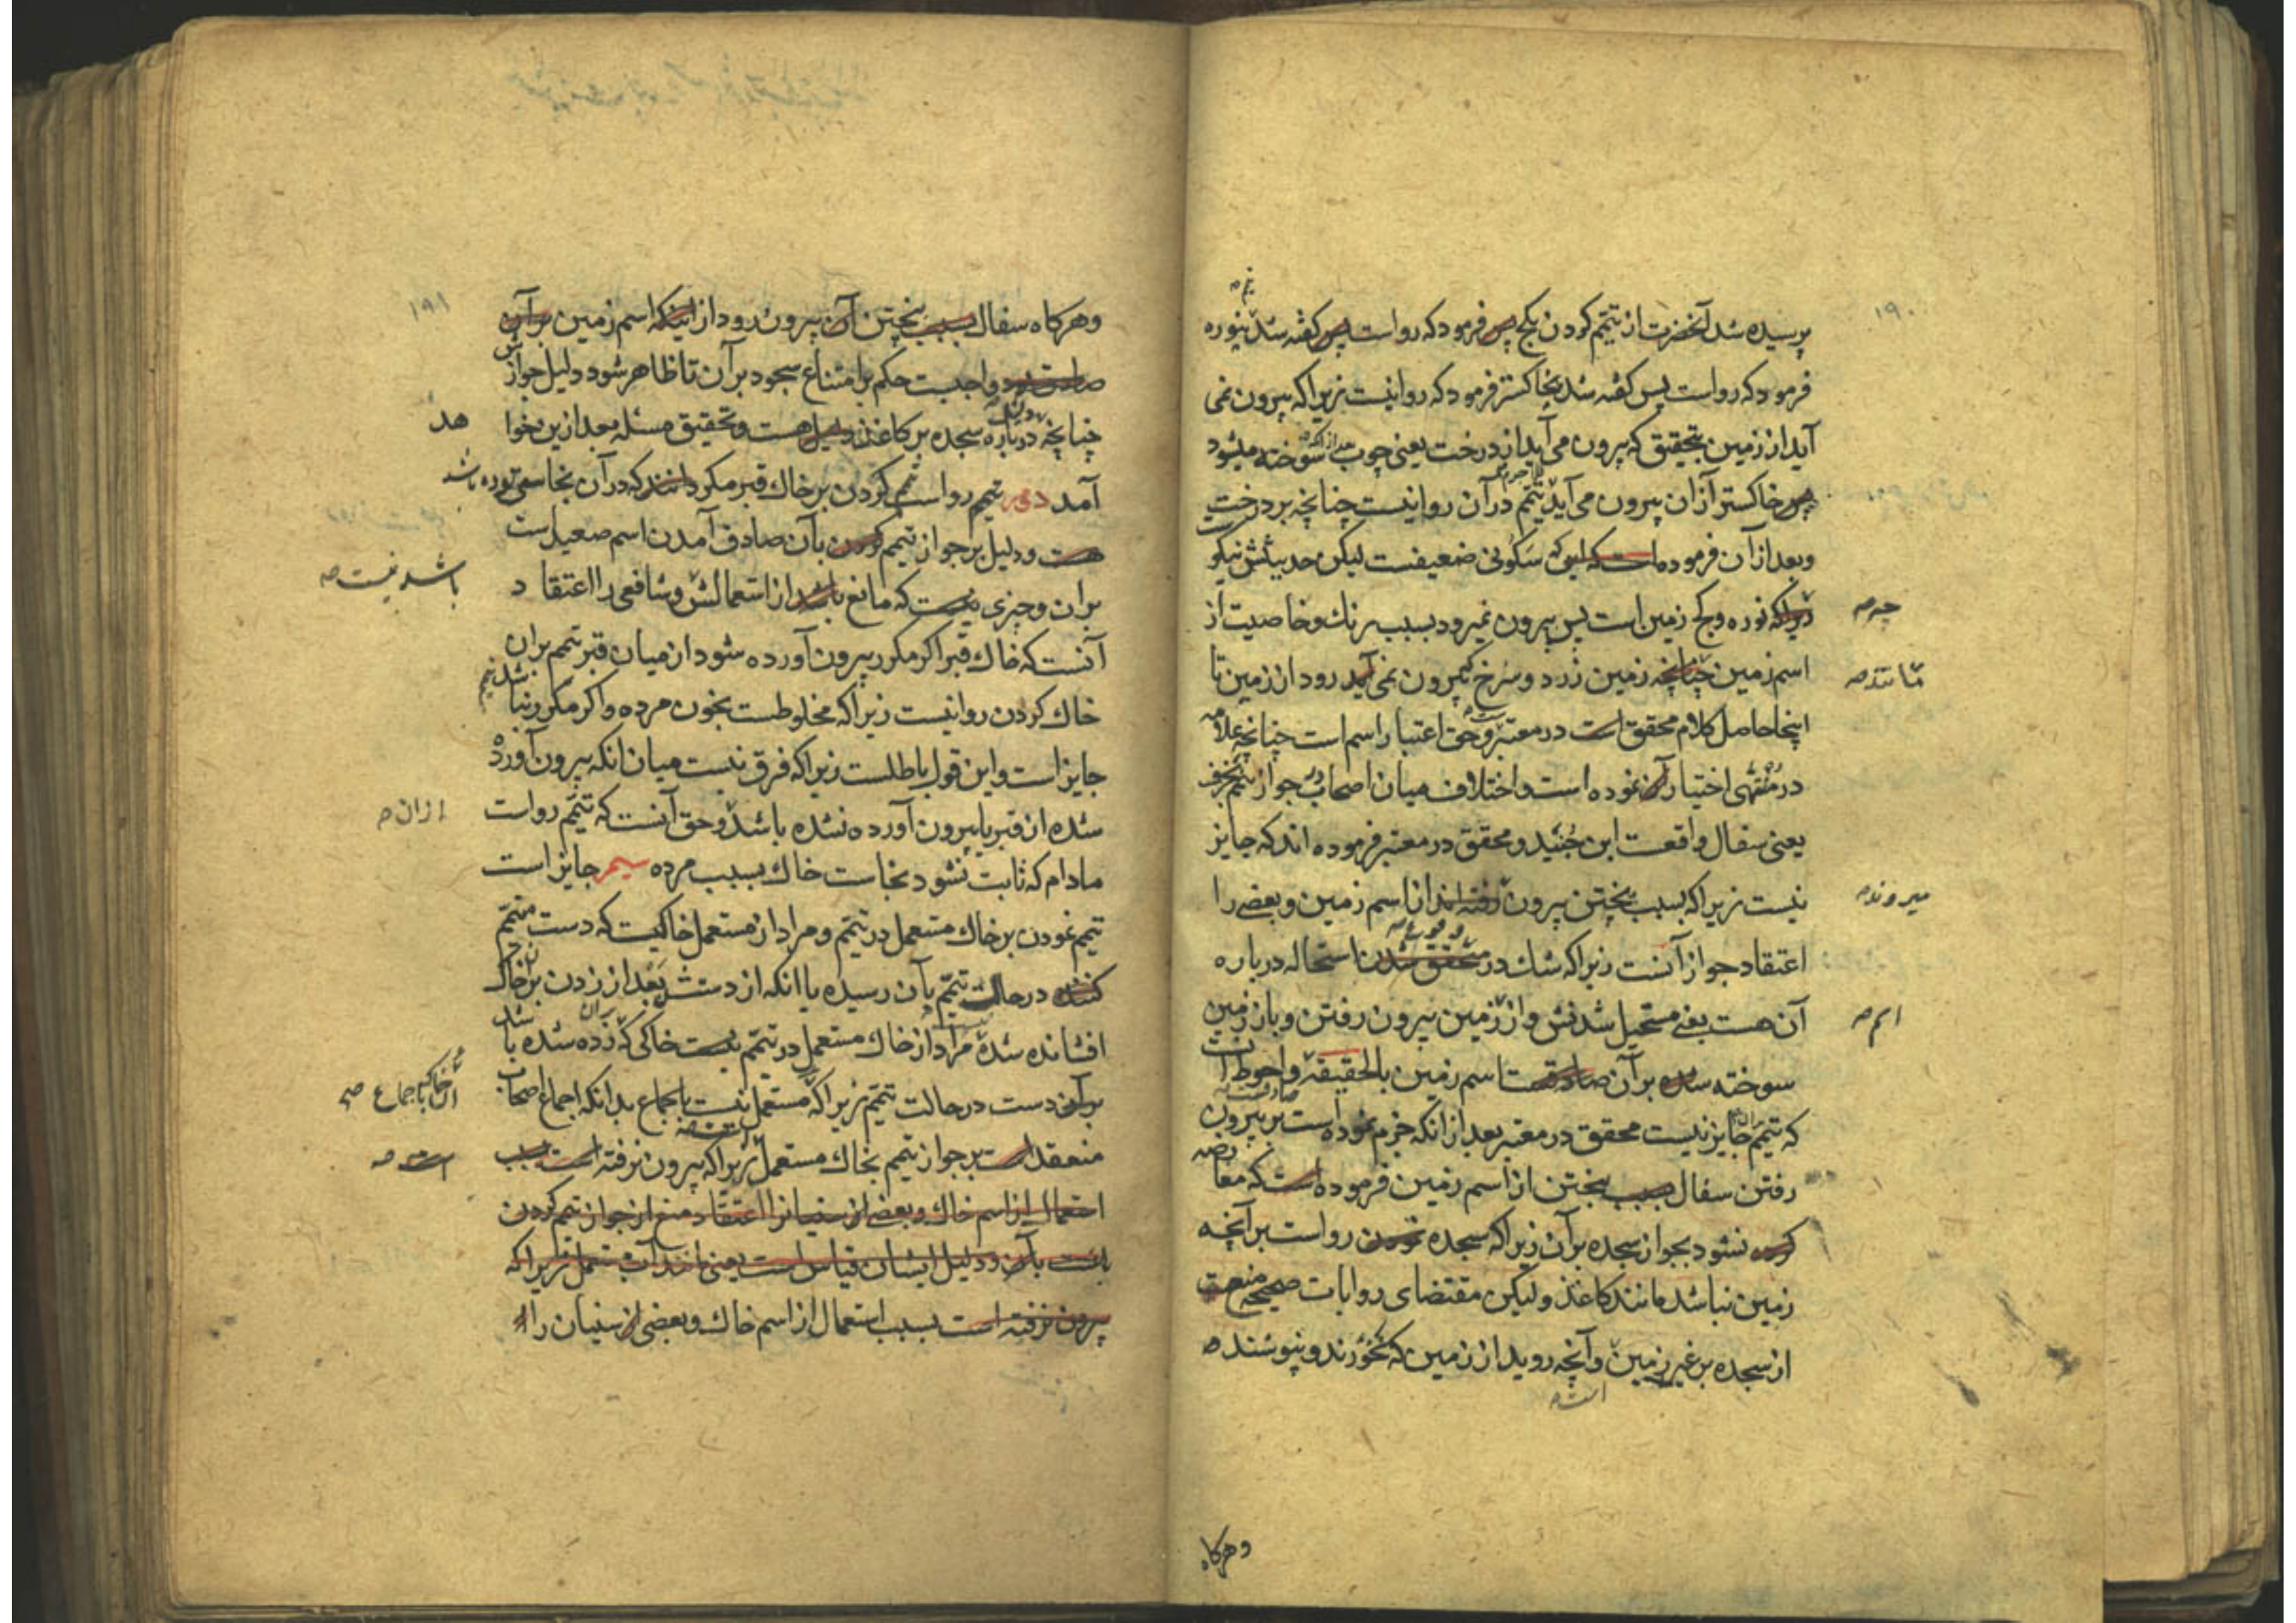 ۱۹۰
پرسیده شد آنحضرت از تیمّم کردن بکج پس فرمود که رواست پس کفته شد بنوره
فرمود که رواست پس کفته شد بخاکستر فرمود که روانیست زیراکه بیرون نمی
آید از زمین بتحقیق که بیرون می آید از درخت یعنی چوب سوخته میشود
پس خاکستر از آن بیرون می آید تیمّم در آن روانیست چنانچه بر درخت
وبعد از آن فرموده است که سکونی ضعیفست لیکن حدیثش نیکو
زیراکه نوره وکج زمین است پس بیرون نمیرود بسبب رنك وخاصیت از
چه ص
اسم زمین چنانچه زمین زرد وسرخ که بیرون نمی آید رود از زمین تا
مانند ص
اینجا حاصل کلام محقق است در معتبر وحق اعتبار اسم است چنانچه علامه
در منتهی اختیار آن نموده است واختلاف میان اصحاب در جواز تیمم بخزف
یعنی سفال واقعست ابن جُنَید ومحقق در معتبر فرموده اند که جایز
نیست زیراکه بسبب پختن بیرون رفته اند از اسم زمین وبعضے را
میروند ص
اعتقاد جواز آنست زیراکه شك در متحقق شدن استحاله درباره
آن هست یعنے مستحیل شدنش واز زمین بیرون رفتن وباز زمین
اسم ص
سوخته شده بر آن صادقست اسم زمین بالحقیقة واحوط آنست
که تیمّم جایز نیست محقق در معتبر بعد از انکه جزم نموده است بر بیرون
رفتن سفال بسبب پختن از اسم زمین فرموده است که معارضه
کرده نشود بجواز سجده بر آن زیراکه سجده نمودن رواست بر آنچه
زمین نباشد مانند کاغذ ولیکن مقتضای روایات صحیحه منع
از سجده بر غیر زمین وآنچه روید از زمین که نخورند ونپوشند ه
است ص
وهرکاه
۱۹۱
وهرکاه سفال بسبب پختن آن بیرون رود از اینکه اسم زمین بر آن
صادق بود واجبست حکم بر امتناع سجود بر آن تا ظاهر شود دلیل جوازش
چنانچه درباره سجده بر کاغذ دلیل هست وتحقیق مسئله بعد ازین بخوا هد
آمد تیمم رواست کردن بر خاك قبر مکر دانند که در آن نجاستی بوده باشد
هست ودلیل بر جواز تیمم کردن بآن صادق آمدن اسم صعید است
بران وچیزی نیست که مانع باشد از استعمالش وشافعی را اعتقاد
باشد نیست ص
آنست که خاك قبر اکر مکرر بیرون آورده شود از میان قبر تیمم بران
خاك کردن روانیست زیراکه مخلوطست بخون مرده واکر مکرر نباشد تیمم
جایز است واین قول باطلست زیراکه فرق نیست میان انکه بیرون آورده
شده از قبر یا بیرون آورده نشده باشد وحق آنست که تیمّم رواست
ازان ص
مادام که ثابت نشود نجاست خاك بسبب مرده جایز است
تیمم نمودن بر خاك مستعمل در تیمّم ومراد از مستعمل خاکیست که دست متیمّم
کننده در حالت تیمّم بآن رسیده یا انکه از دستش بعد از زدن بر خاك
افشانده شده مراد از خاك مستعمل در تیمّم نیست خاکی که زده شده باشد
بر آن دست در حالت تیمّم زیراکه مستعمل نیست باجماع بدانکه اجماع اصحاب
منعقد است بر جواز تیمم بخاك مستعمل زیراکه بیرون نرفته است بسبب
است ص
احتمال از اسم خاك وبعضے از سنیانرا اعتقاد منع از جواز تیمم کردن
است بآن ودلیل ایشان قیاس است یعنی مانند آب مستعمل زیراکه
بیرون نرفته است بسبب استعمال از اسم خاك وبعضی از سنیان را